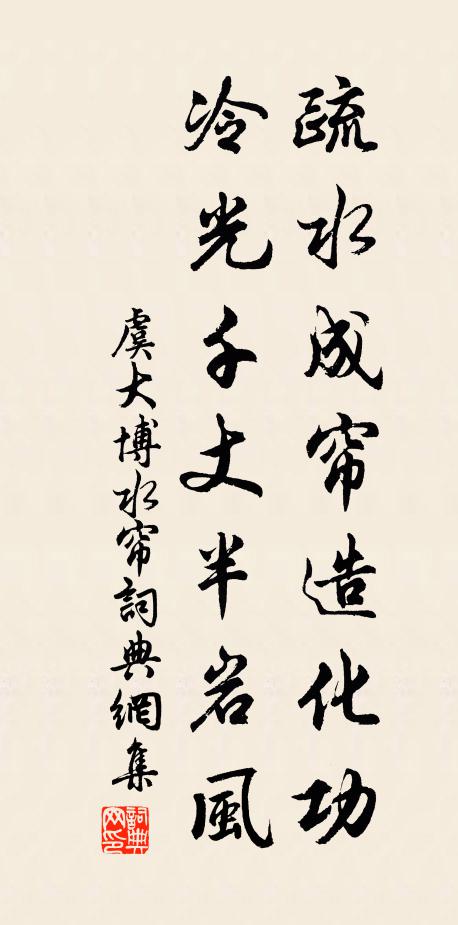 疏水成帘造化功
冷光千丈半岩風
虞大博水帘詞典網集
詞典網印